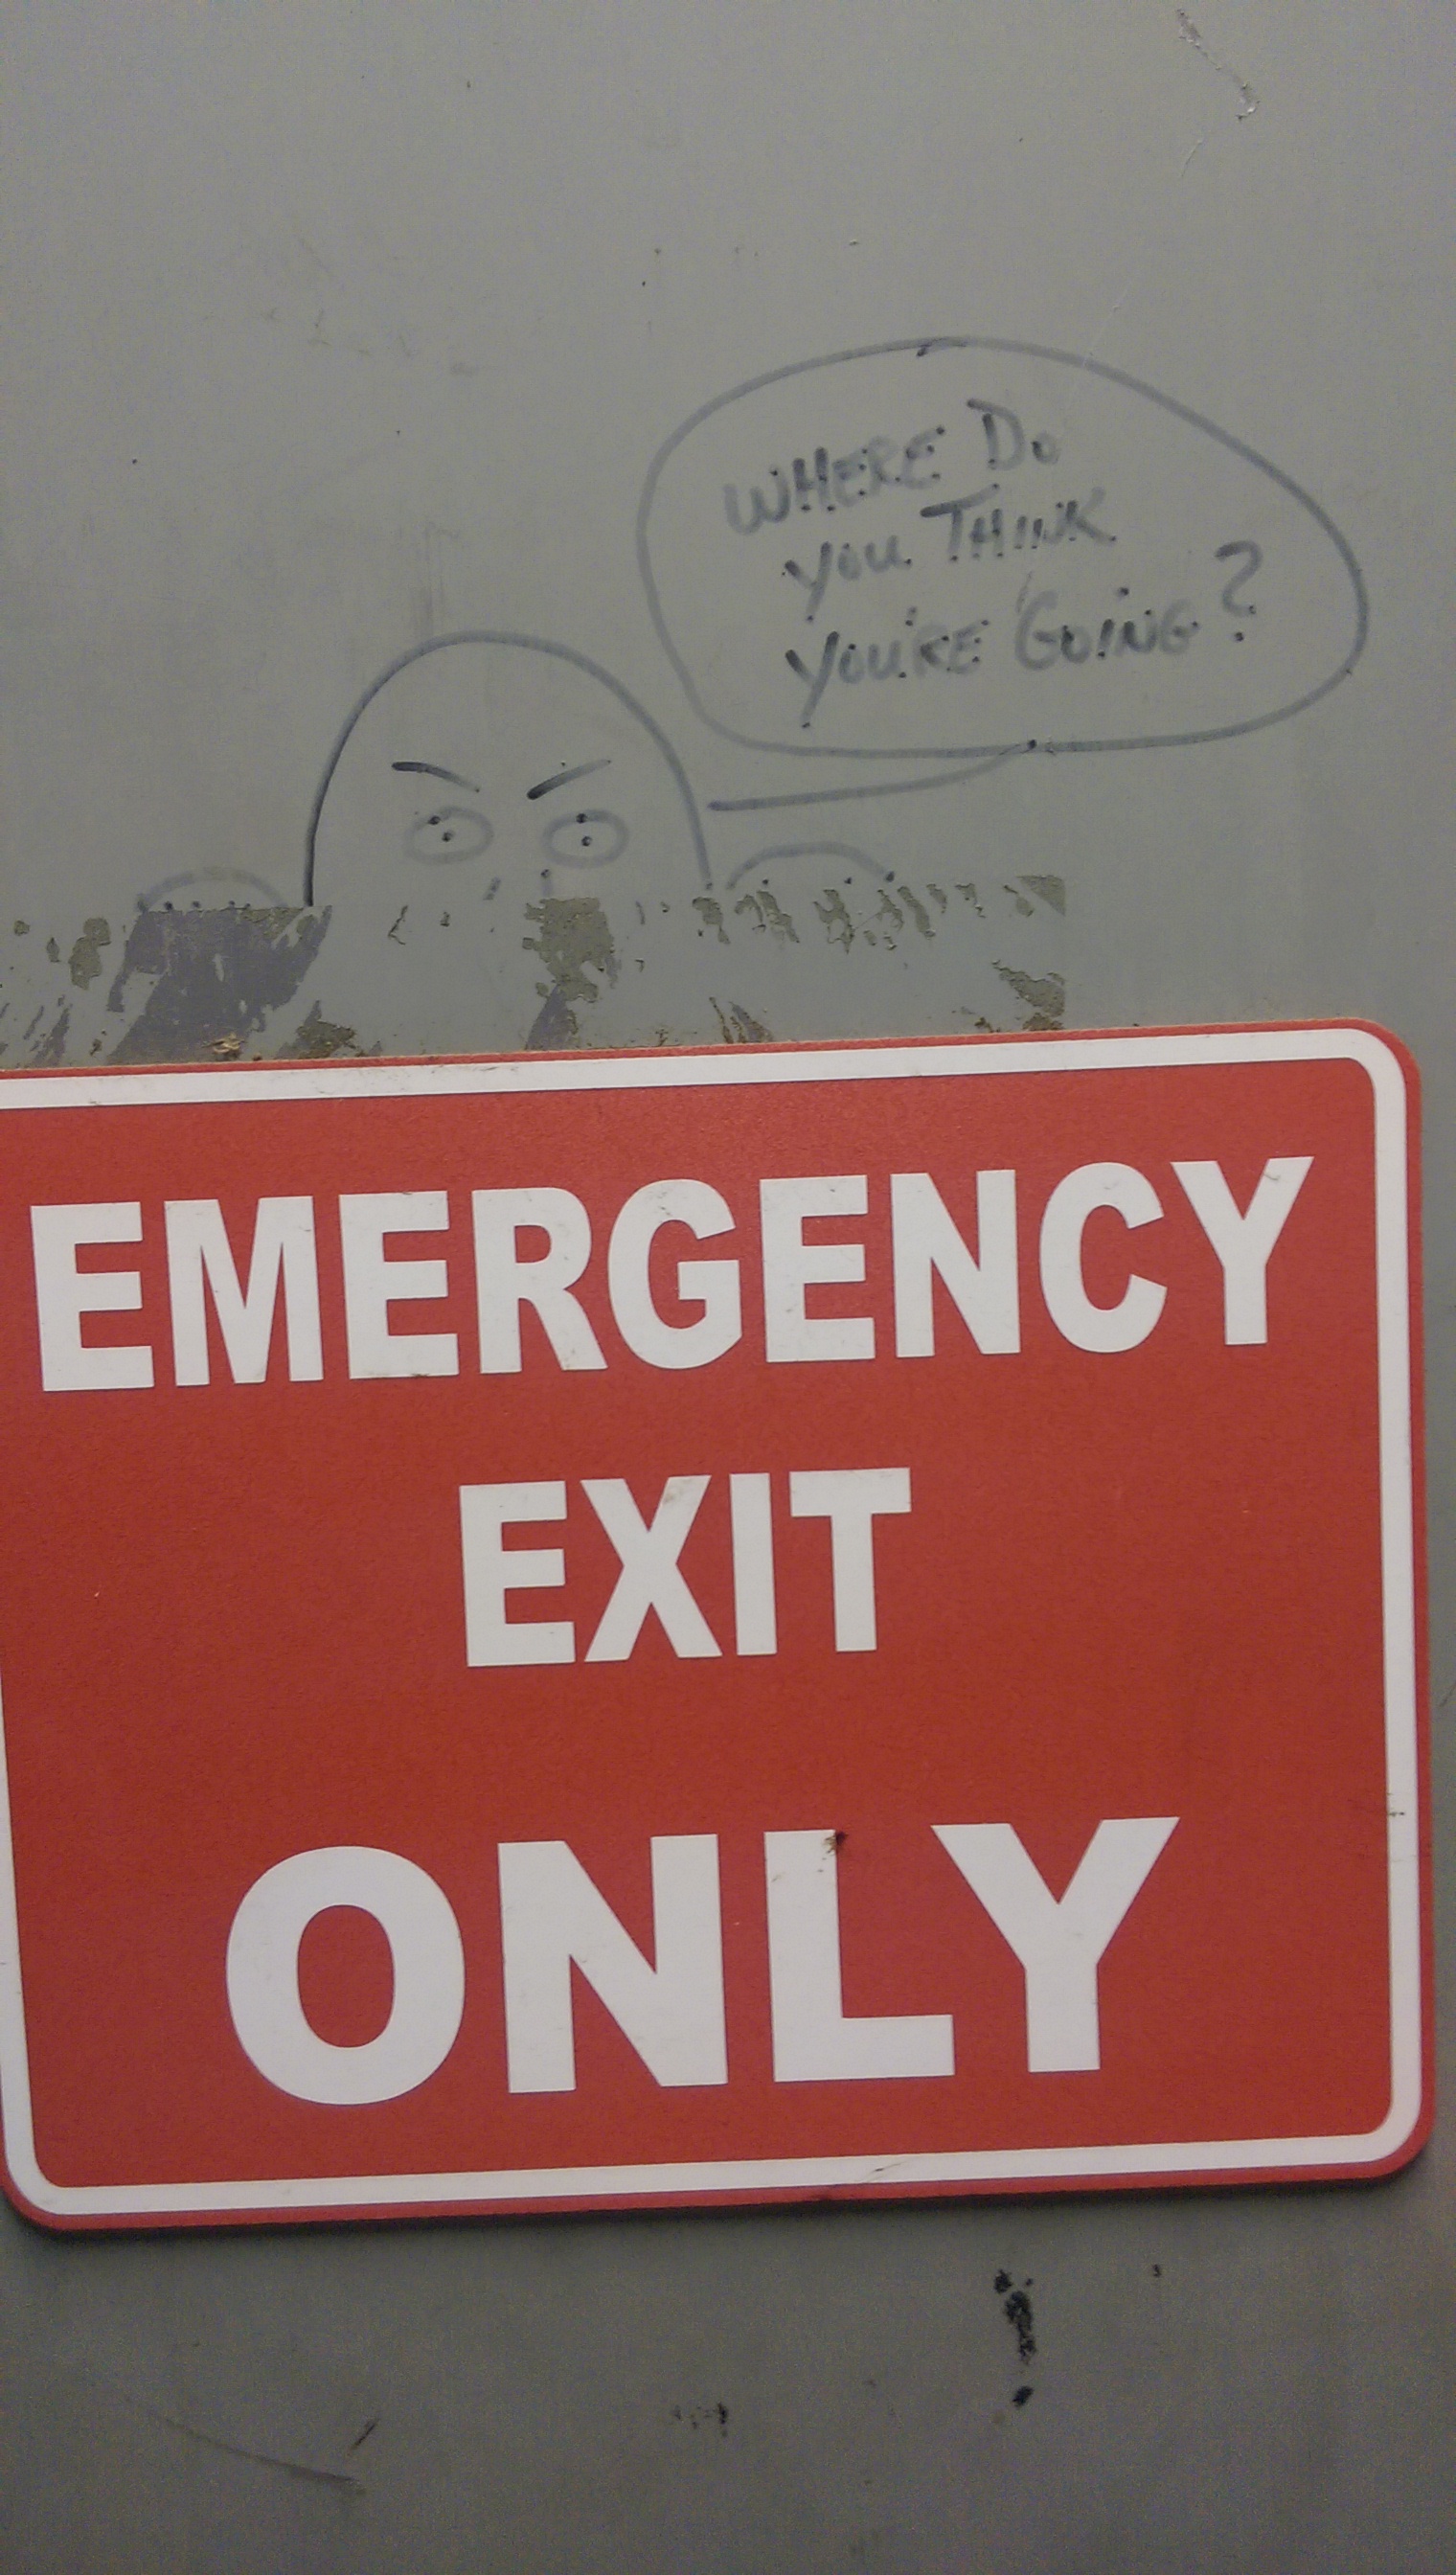 WHERE DO
YOU THINK
YOU'RE GOING?
EMERGENCY
EXIT
ONLY